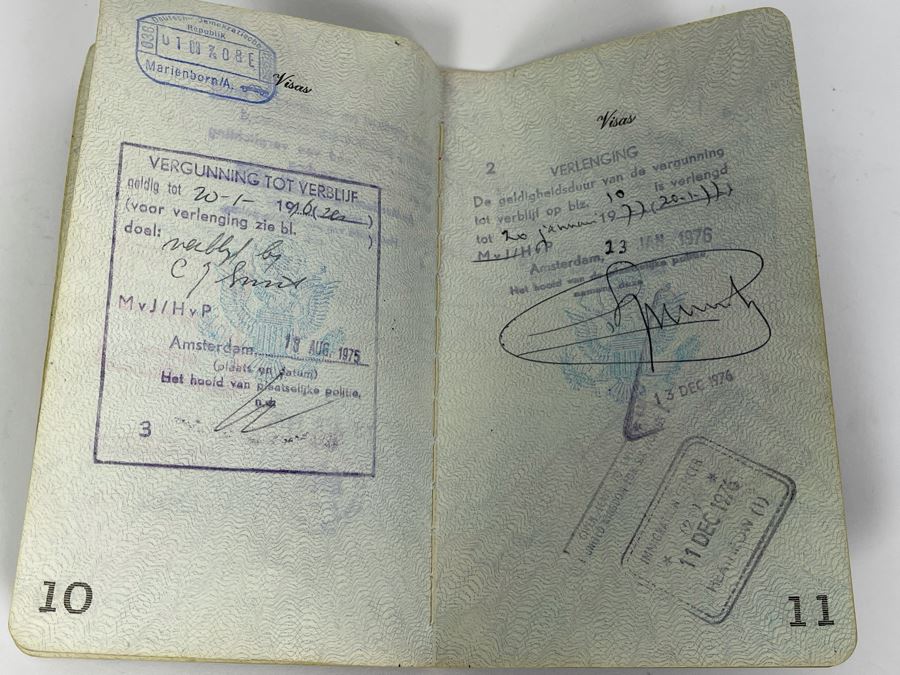 Deutsche Demokratische
Republik
Marienborn/A.
Visas
VERGUNNING TOT VERBLIJF
geldig tot 20-1- 1976
(voor verlenging zie bl. )
doel:
MvJ/HvP
Amsterdam, 13 AUG. 1975
(plaats en datum)
Het hoofd van plaatselijke politie,
n.a.
3
10
Visas
2 VERLENGING
De geldigheidsduur van de vergunning
tot verblijf op blz. 10 is verlengd
tot 20 januari 1977 (20-1-77)
MvJ/HvP
Amsterdam, 23 JAN 1976
Het hoofd van de plaatselijke politie,
namens deze
13 DEC 1976
IMMIGRATION OFFICER
* (2 ) *
11 DEC 1976
HEATHROW (1)
11